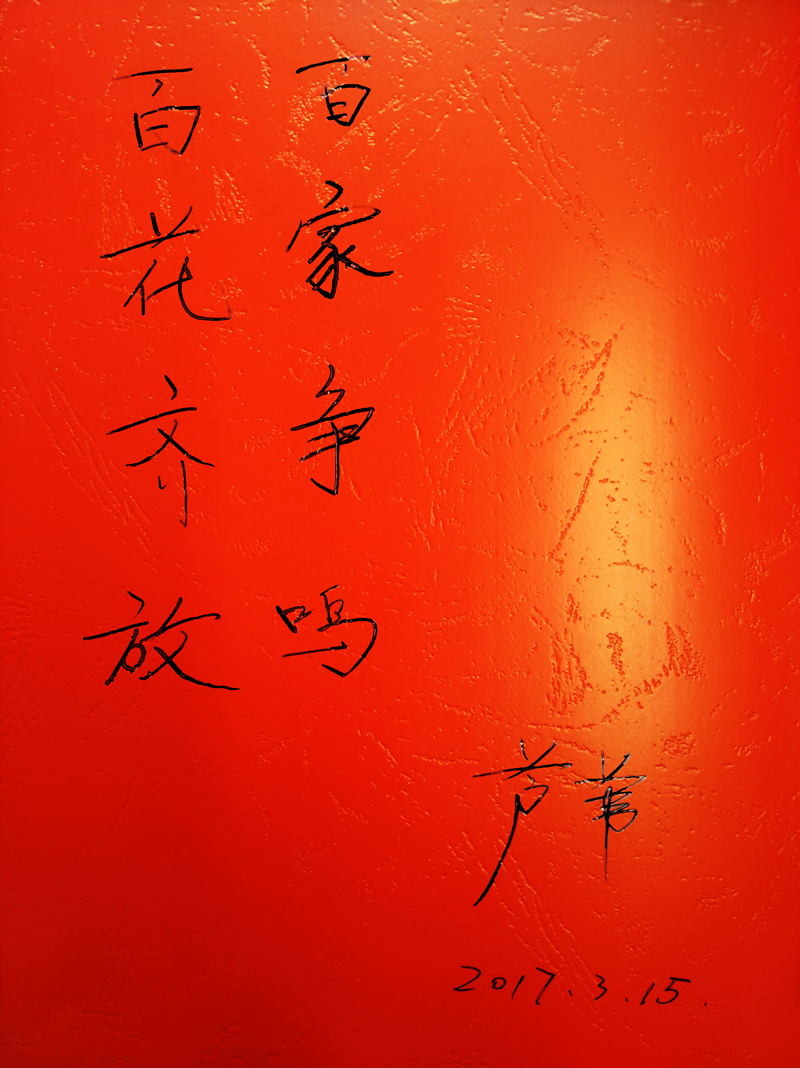 百花齐放
百家争鸣
芦苇
2017.3.15.